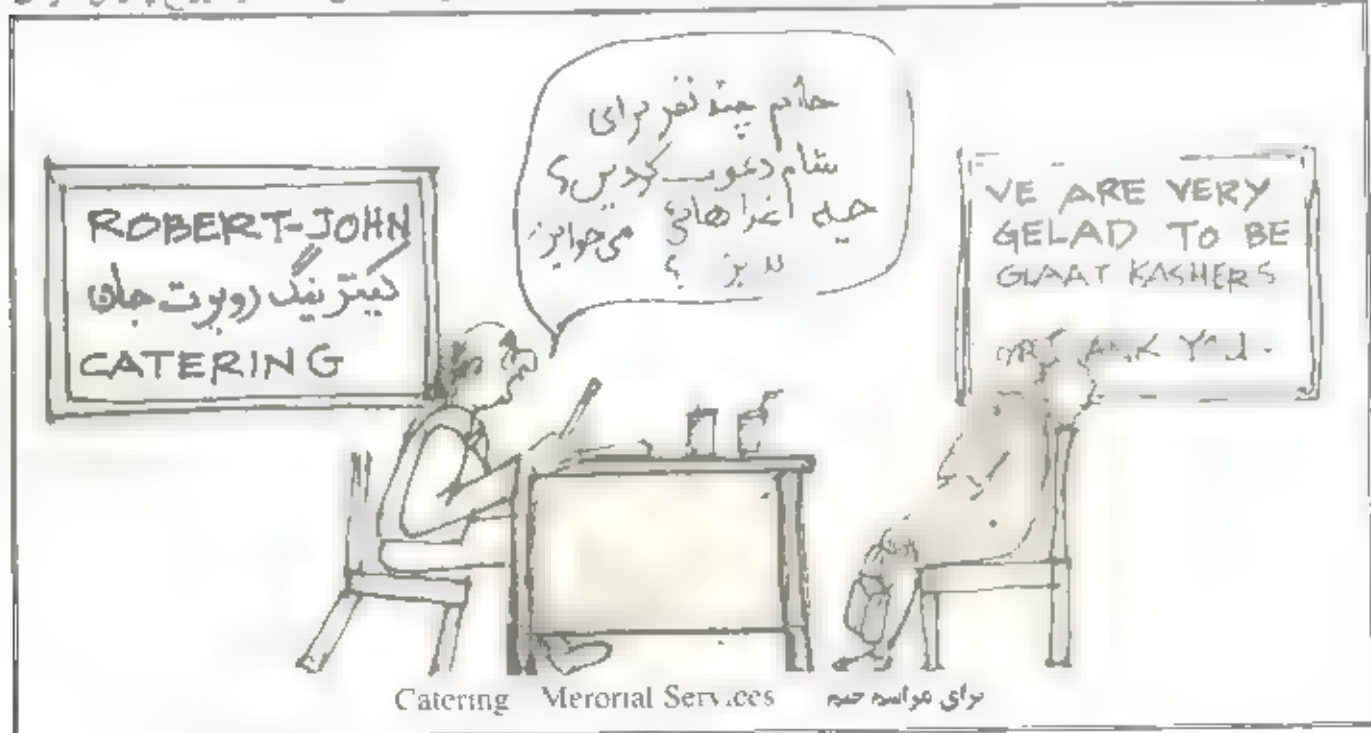 ROBERT-JOHN
کیترینگ روبرت جان
CATERING
خانم چند نفر برای
شام دعوت کردین؟
چه غذاهائی
VE ARE VERY
GELAD TO BE
GLAAT KASHERS
Catering Memorial Services برای مراسم